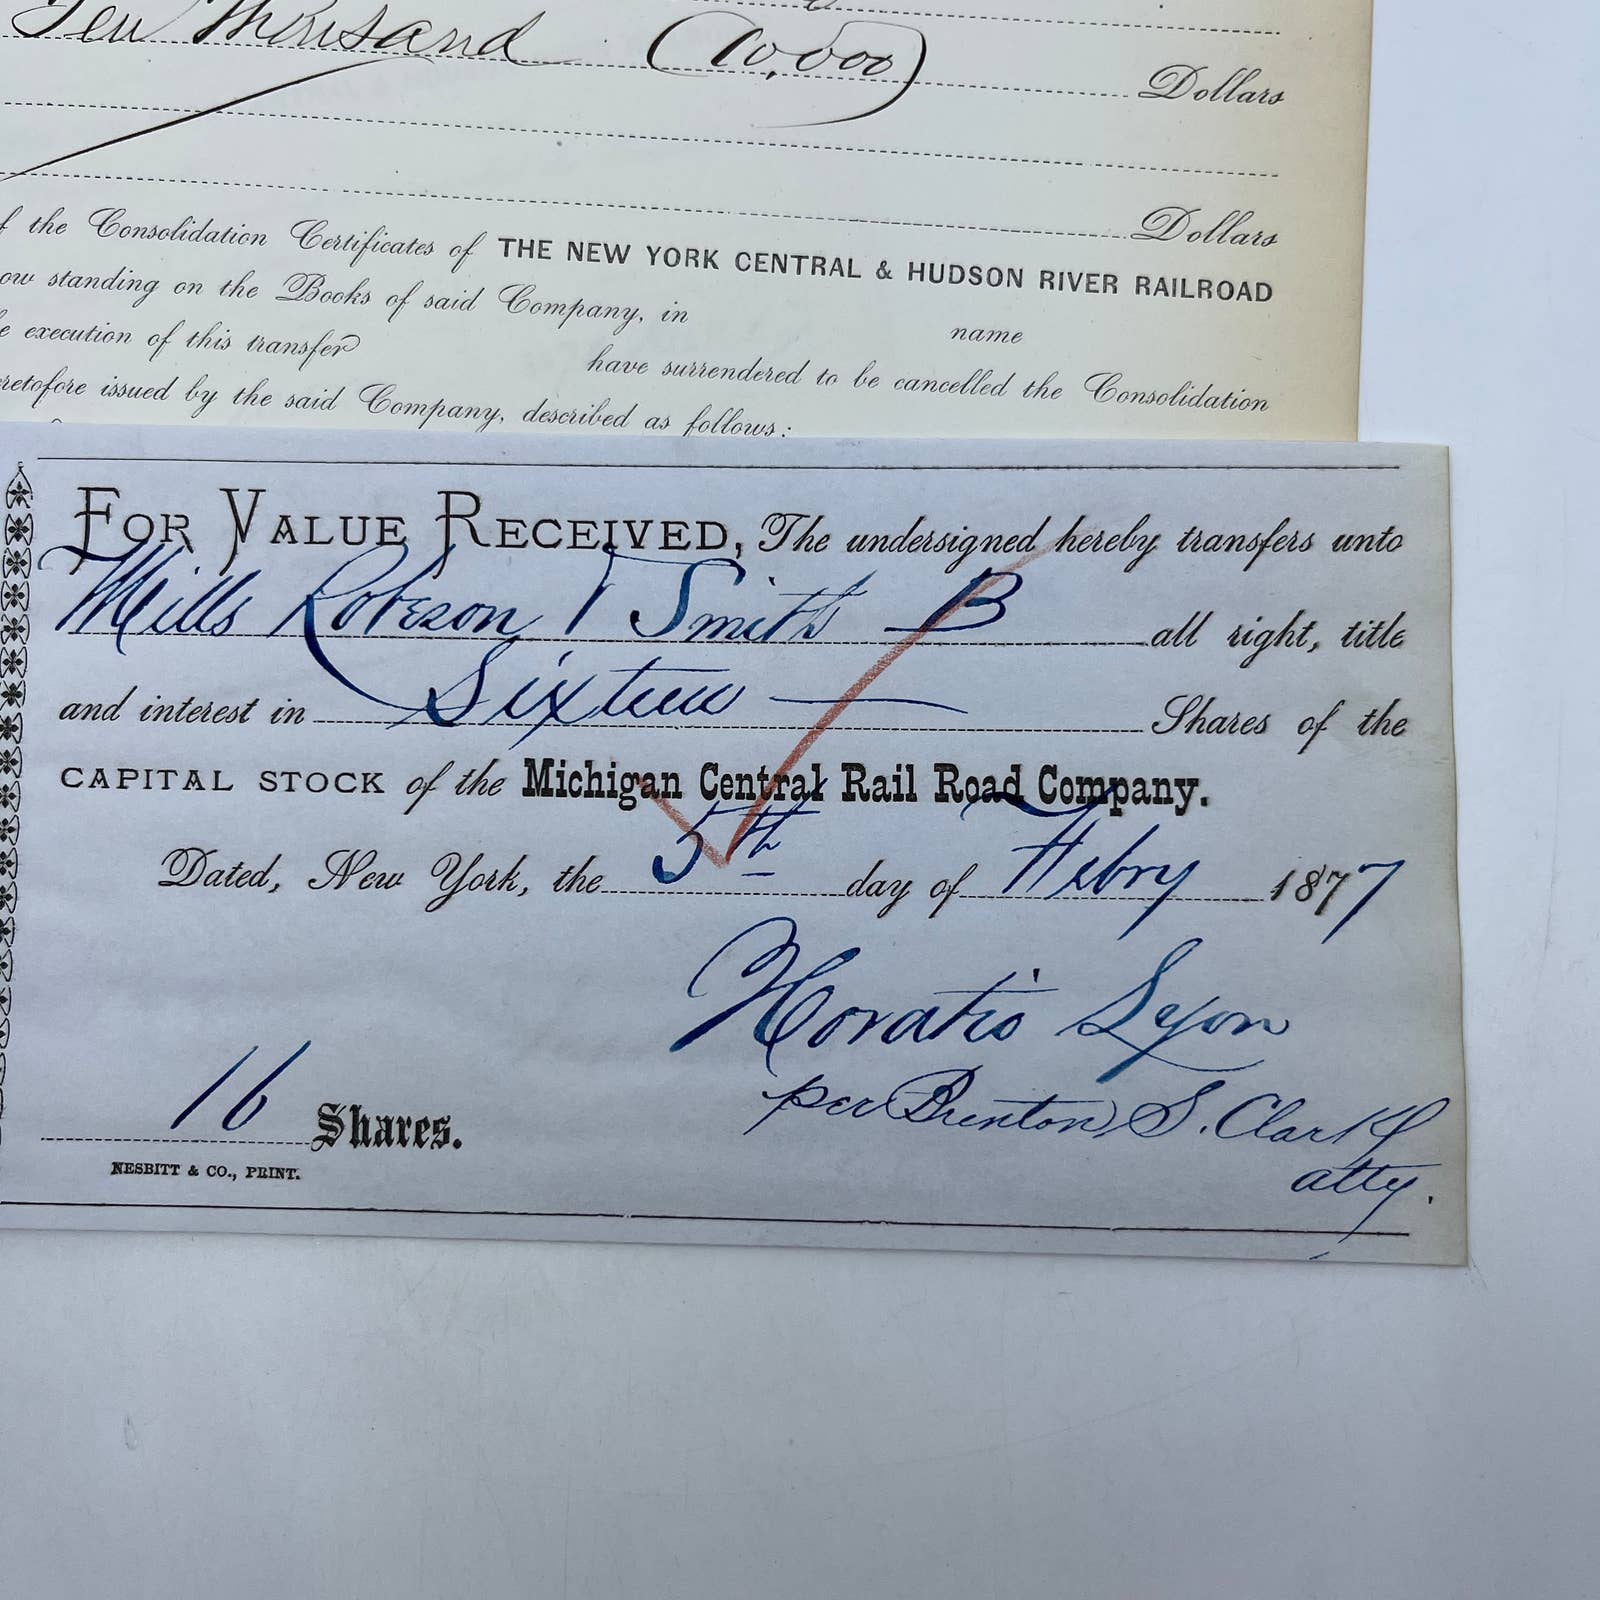 Ten Thousand (10,000) Dollars
Dollars
f the Consolidation Certificates of THE NEW YORK CENTRAL & HUDSON RIVER RAILROAD
ow standing on the Books of said Company, in name
e execution of this transfer have surrendered to be cancelled the Consolidation
retofore issued by the said Company, described as follows:
FOR VALUE RECEIVED, The undersigned hereby transfers unto
Mills Robeson & Smith B all right, title
and interest in Sixteen Shares of the
CAPITAL STOCK of the Michigan Central Rail Road Company.
Dated, New York, the 5th day of Febry 1877
Horatio Lyon
per Brenton S. Clark
atty.
16 Shares.
NESBITT & CO., PRINT.